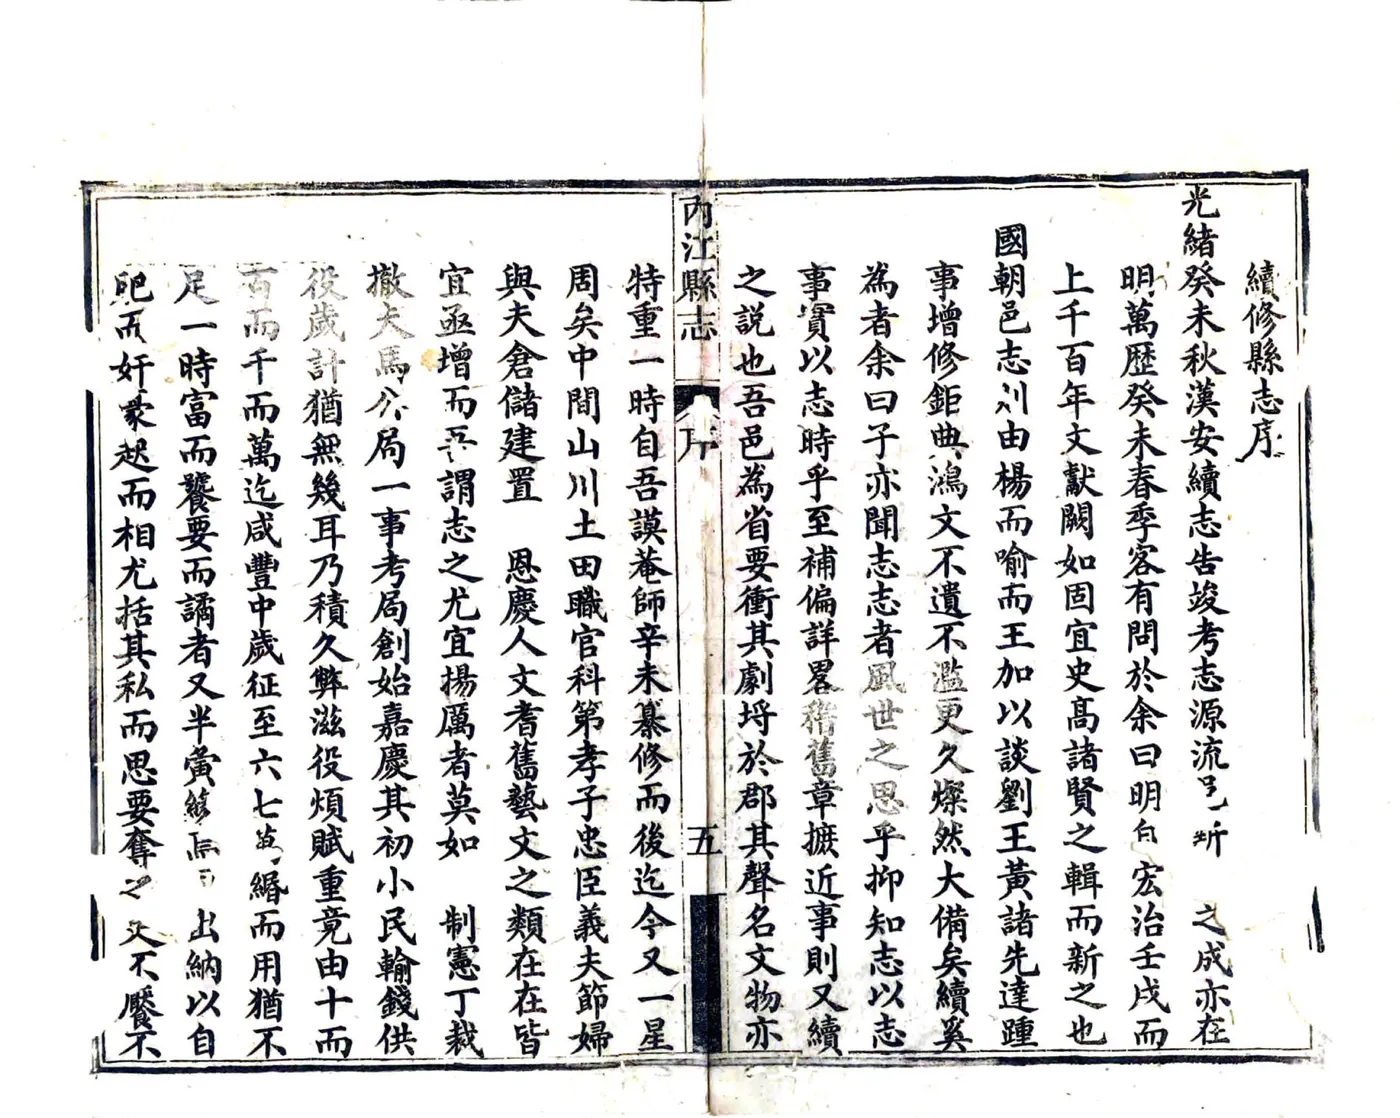 續修縣志序
光緒癸未秋漢安續志告竣考志源流之成亦在
明萬歷癸未春季客有問於余曰明自宏治壬戌而
上千百年文獻闕如固宜史高諸賢之輯而新之也
國朝邑志刋由楊而喻而王加以談劉王黃諸先達踵
事增修鉅典鴻文不遺不濫更久燦然大備矣續奚
為者余曰子亦聞志志者風世之思乎抑知志以志
事實以志時乎至補偏詳畧稽舊章摭近事則又續
之説也吾邑為省要衝其劇埒於郡其聲名文物亦
內江縣志
序
五
特重一時自吾謨菴師辛未纂修而後迄今又一星
周矣中間山川土田職官科第孝子忠臣義夫節婦
與夫倉儲建置 恩慶人文耆舊藝文之類在在皆
宜亟增而吾謂志之尤宜揚厲者莫如 制憲丁裁
撤夫馬公局一事考局創始嘉慶其初小民輸錢供
役歲計猶無幾耳乃積久弊滋役煩賦重竟由十而
百而千而萬迄咸豐中歲征至六七萬緡而用猶不
足一時富而饕要而譎者又半黌出納以自
肥而奸豪起而相尤括其私而思要奪之又不饜不